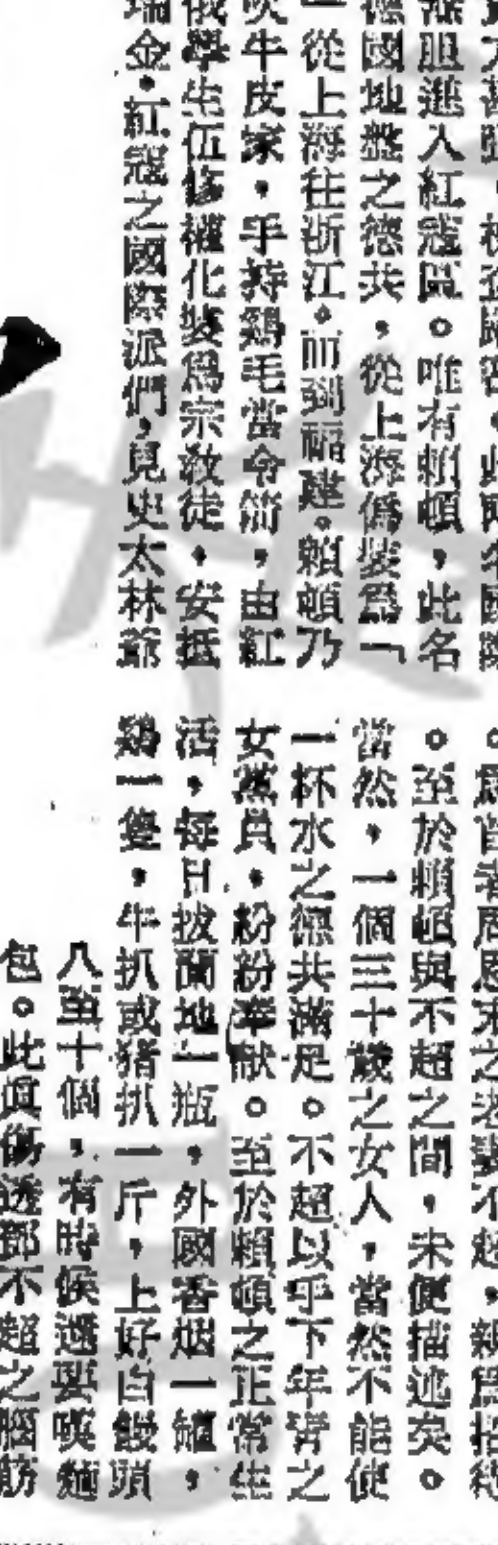 胆進入紅寇區。唯有賴頓，此名
德國地盤之德共，從上海僞裝爲「
一從上海往浙江。而到福建。賴頓乃
吹牛皮家，手持鷄毛當令箭，由紅
俄學生伍修權化裝爲宗敎徒，安抵
瑞金。紅寇之國際派們，見史太林爺
。至於賴頓與不超之間，未便描述矣。
當然，一個三十歲之女人，當然不能使
一杯水之德共滿足。不超以乎下年靑之
女黨員，粉粉奉獻。至於賴頓之正常生
活，每日拔蘭地一瓶，外國香烟一罐，
鷄一隻，牛扒或猪扒一斤，上好白饅頭
八至十個，有時候還要嘆麵
包。此眞傷透鄧不超之腦筋